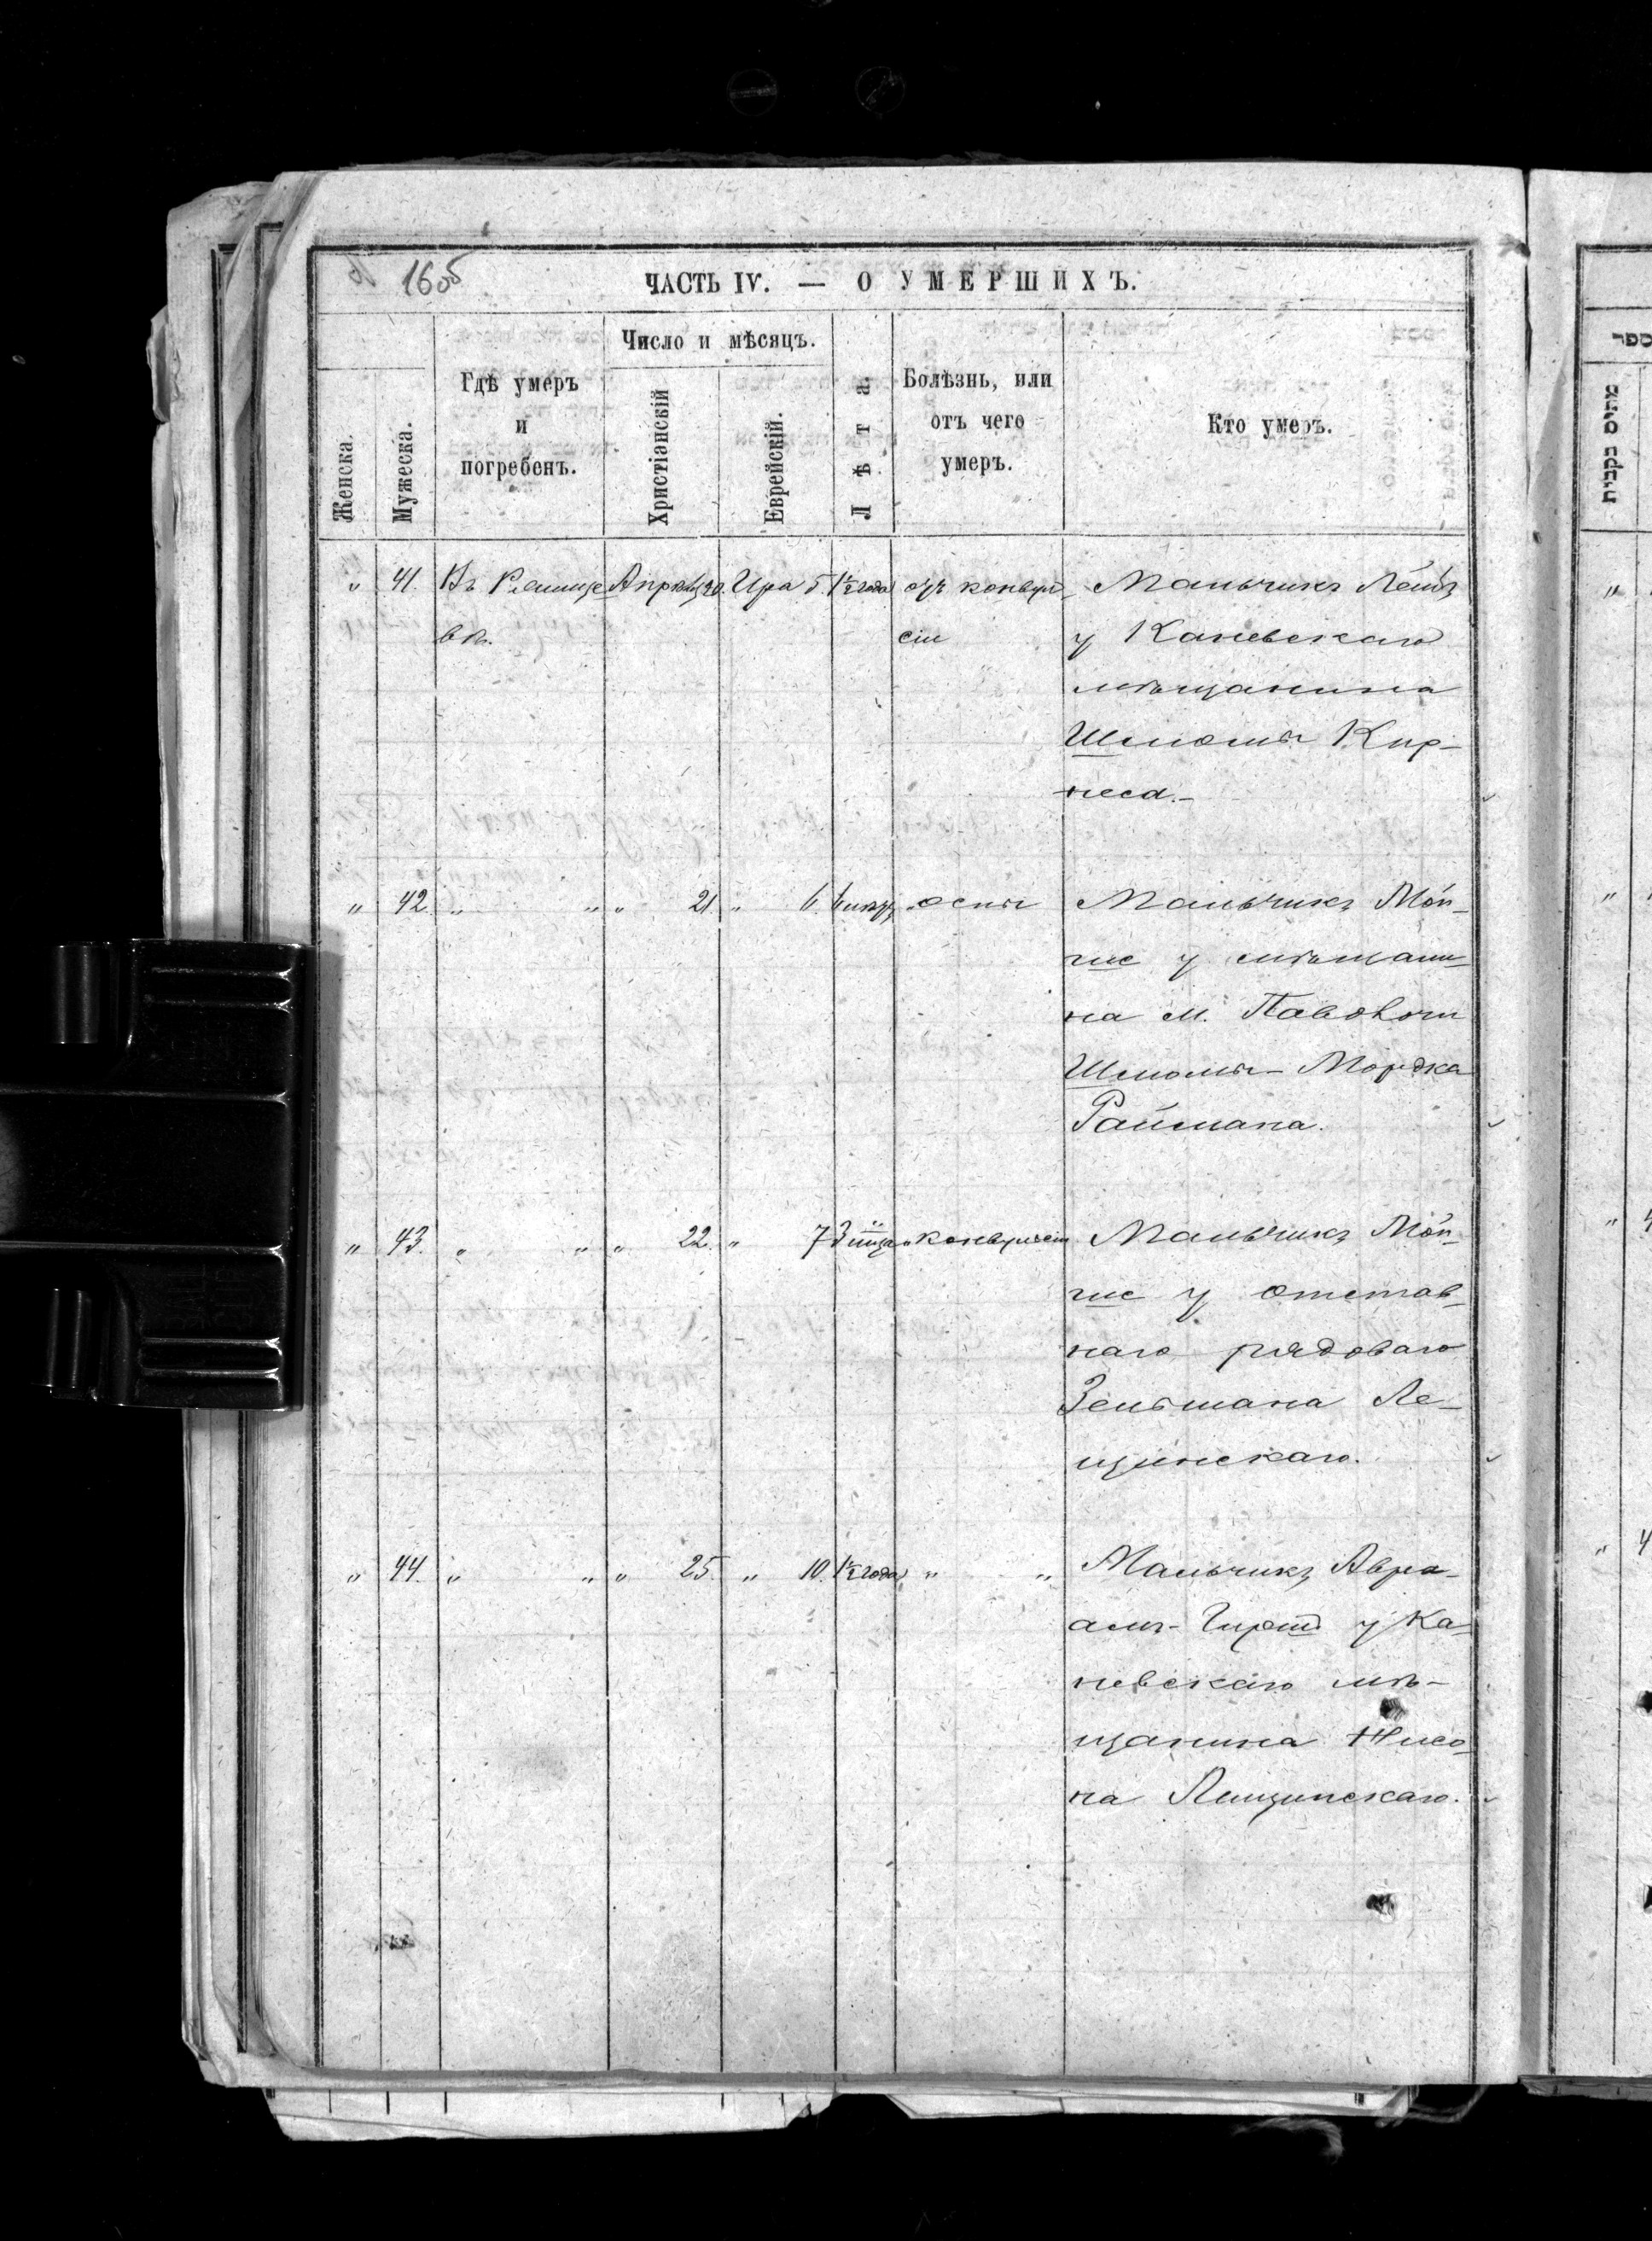 1605
ЧАСТЬ IV. — О УМЕРШИХЪ.
Женска.
Мужеска.
Гдѣ умеръ
и
погребенъ.
Число и мѣсяцъ.
Христіанскій
Еврейскій.
Лѣта.
Болѣзнь, или
отъ чего
умеръ.
Кто умеръ.
„ 41. Въ Ряшице Апрѣля 20. Ира 5. 1½ года отъ конвул- Мальчикъ Лейбъ
вѣ. сіи у Каневскаго
мѣщанина
Шлiомы Кир-
неса.-
„ 42. „ „ „ 21. „ 6. „ оспы Мальчикъ Мой-
ше у мѣщани-
на м.
Шлiомы-Мордка
Райсмана.
„ 43. „ „ „ 22. „ 7 3 „ конвульсіи Мальчикъ Мой-
ше у отстав-
наго рядоваго
Зельмана Ле-
щинскаго.
„ 44. „ „ „ 25. „ 10. 1½ года „ „ Мальчикъ Авра-
амъ-Гиршъ у Ка-
невскаго мѣ-
щанина Нисо-
на Лещинскаго.
ספר
מתים